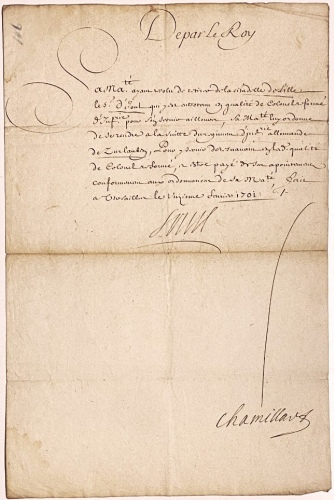 De par Le Roy
Sa Ma.té ayant resolu de retirer de la citadelle de Lille
le S.r qui y est entretenu en qualité de Colonel reformé
d'Inf.rie pour s'en servir ailleurs, Sa Ma.té luy ordonne
de se rendre a la suitte du regiment d'Inf.rie allemande
de Zurlauben, pour y servir doresnavant en lad. qualité
de Colonel reformé, et estre payé de ses apointemens
conformement aux ordonnances de Sa Ma.té. Fait
a Versailles le janvier 1701
Louis
Chamillart